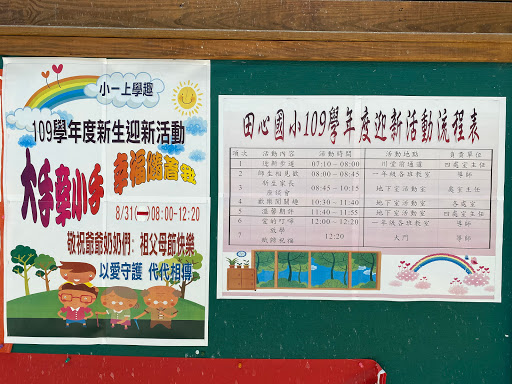 小一上學趣
109學年度新生迎新活動
大手牽小手
幸福隨著我
8/31(一)08:00-12:20
敬祝爺爺奶奶們:祖父母節快樂
以愛守護 代代相傳
田心國小109學年度迎新活動流程表
項次 活動內容 活動時間 活動地點 負責單位
1 迎新步道 07:10-08:00 川堂前通道 四處室主任
2 師生相見歡 08:00-08:45 一年級各班教室 導師
3 新生家長座談會 08:45-10:15 地下室活動室 處室主任
4 歡樂闖關趣 10:30-11:40 地下室活動室 各處室
5 溫馨期許 11:40-11:55 地下室活動室 四處室主任
6 愛的叮嚀 12:00-12:20 一年級各班教室 導師
7 放學 12:20 大門 導師